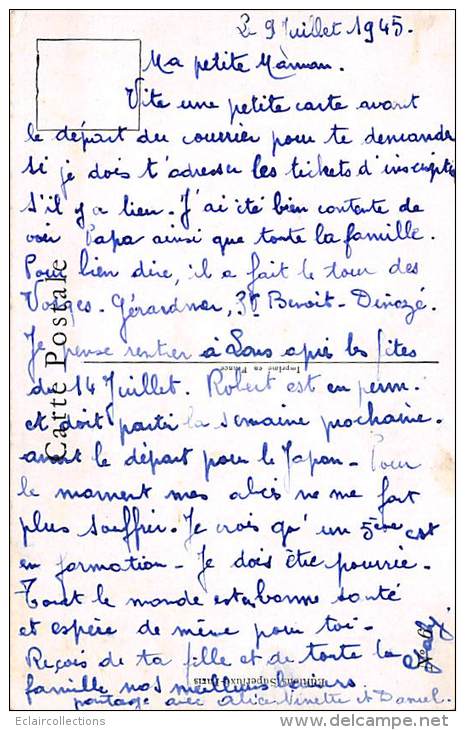 Le 9 Juillet 1945.
Ma petite Maman.
Vite une petite carte avant
le départ du courrier pour te demander
si je dois t'adresser les tickets d'inscription
s'il y a lieu. J'ai été bien contente de
voir Papa ainsi que toute la famille.
Pour bien dire, il a fait le tour des
Vosges. Gérardmer, St Benoit. Dinozé.
Je pense rentrer à Sens après les fêtes
du 14 Juillet. Robert est en perm.
et doit partir la semaine prochaine.
avant le départ pour le Japon. Pour
le moment mes abcès ne me font
plus souffrir. Je crois qu'un 5ème est
en formation. Je dois être pourrie.
Tout le monde est en bonne santé
et espère de même pour toi.
Reçois de ta fille et de toute la
famille nos meilleurs baisers
partagé avec Alice Ninette et Daniel.
Carte Postale
Imprimé en France
Eclaircollections
www.delcampe.net